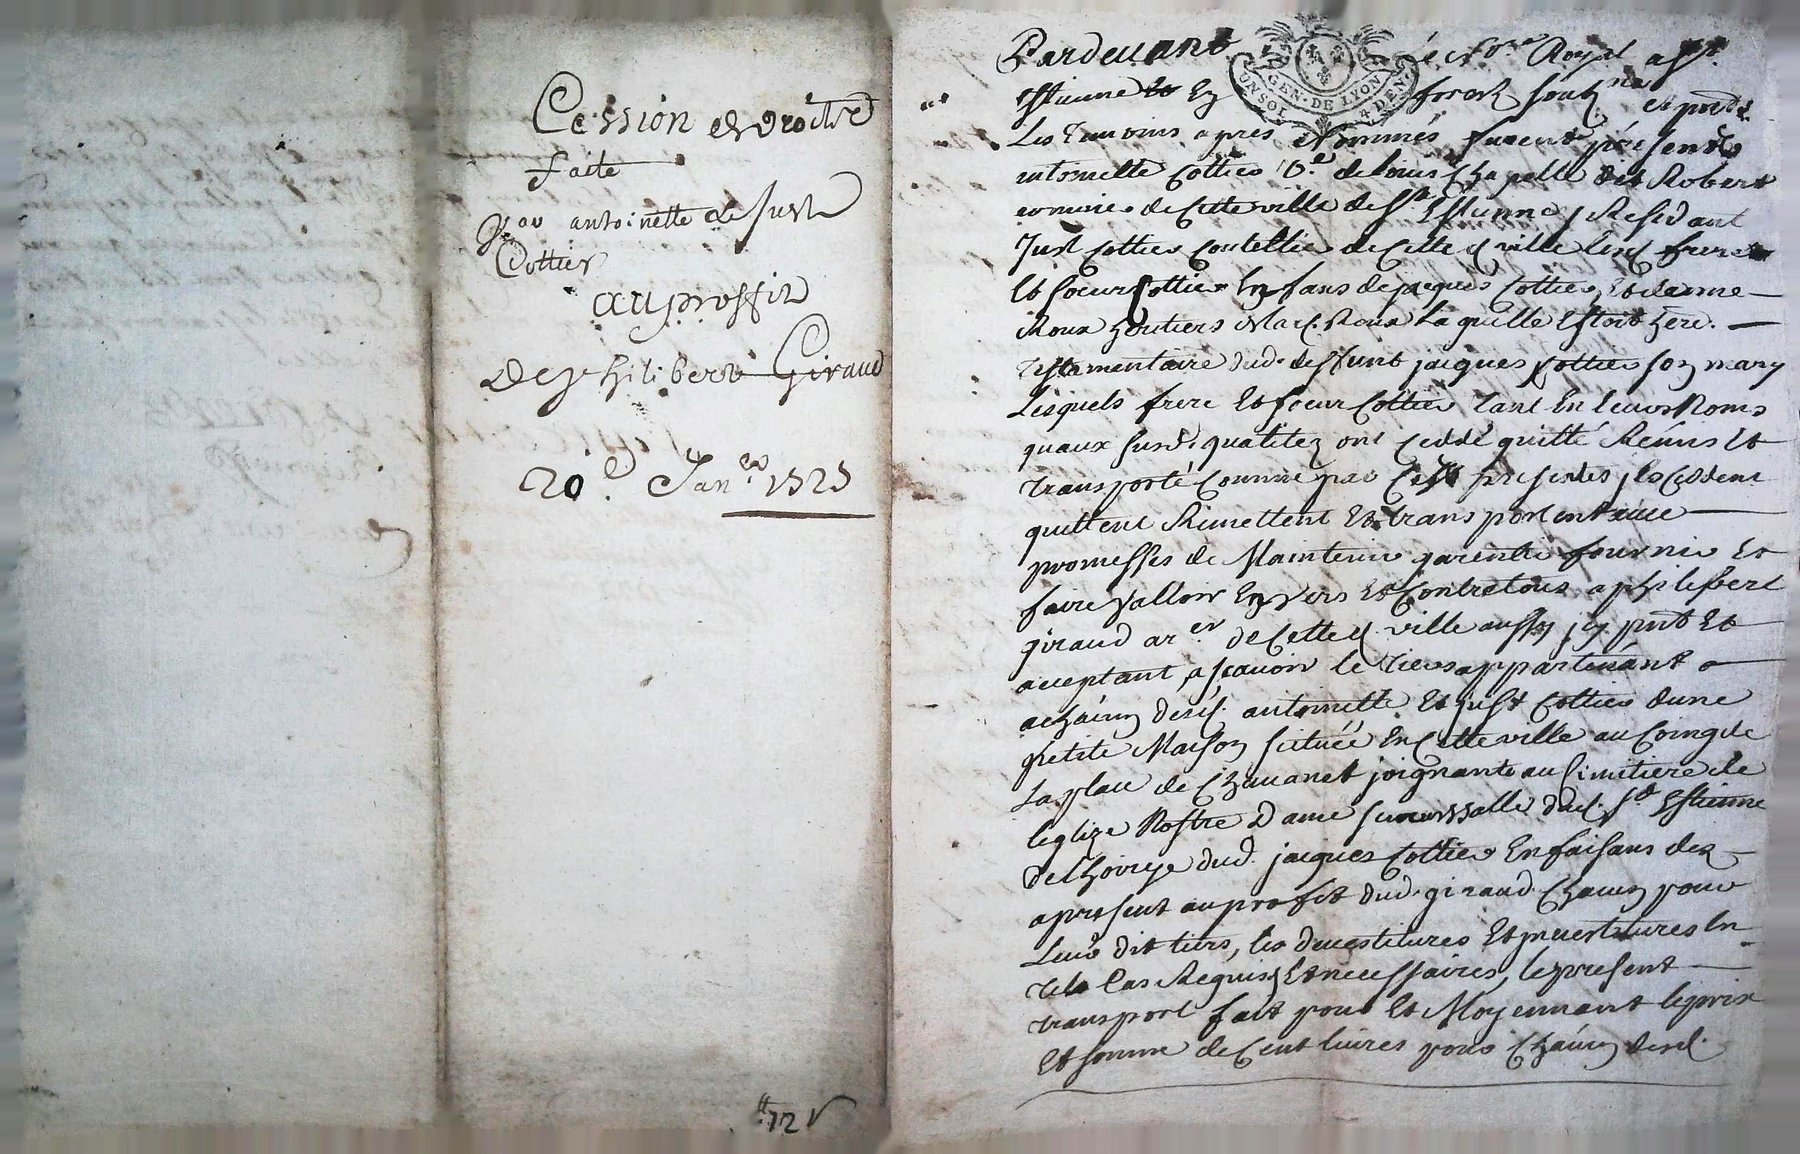 Cession de droitz
faite
par antoinette et Just
Cottier
au proffit
de philibert Giraud
20e. Janer 1725
72
Pardevant le Nore. Royal a St.
Estienne En forest soubsne et pnts
GEN. DE LYON
4 DEN.
Les Temoins apres Nommés furent presents
antoinette Cottier Ve. de Louis Chapelle dit Robert
de Cette ville de St Estienne y Residant
Just Cottier Coutellier de Cette d. ville lesd. frere
Et soeur Cottier Enfans de jacques Cottier, Et de anne
Roux heritiers de lad. Roux Laquelle Estoit here.
Testamentaire dud. deffunt jacques Cottier son mary
Lesquels frere Et soeur Cottier tant En leurs Noms
quaux susd. qualitez ont Ceddé quitté Remis Et
transporté Comme par Ces presentes ils Ceddent
quittent Remettent Et transportent avec
promesses de Maintenir garentir fournir Et
faire valloir Envers Et Contre tous a philibert
giraud arer de Cette d. ville aussy icy pnt Et
acceptant, a scavoir le Tiers appartenant a
achacun desd. antoinette Et just Cottier dune
petite Maison scituée En Cette ville au Coing de
La place de Chavanet joignant au Cimitiere de
leglize Nostre Dame succurssalle dud. St Estienne
de lhoirye dud. jacques Cottier En faisans dez
apresent au profit dud. giraud Chacun pour
Leur dit tiers, les devestitures Et investitures En
tel Cas Requis Et necessaires, le present
transport fait pour Et Moyennant le prix
Et somme de Cent livres pour Chacun desd.